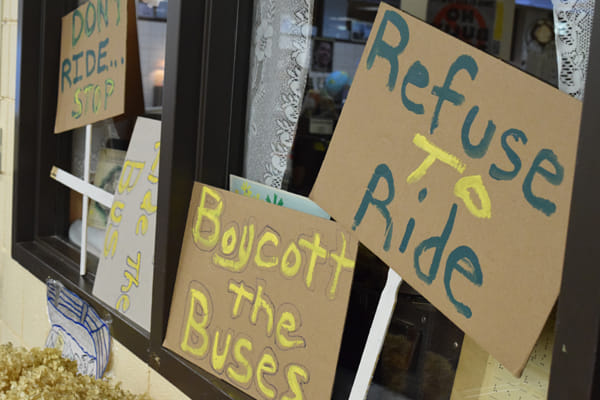 DON'T
RIDE...
STOP
the
Bus
Boycott
the
Buses
Refuse
To
Ride